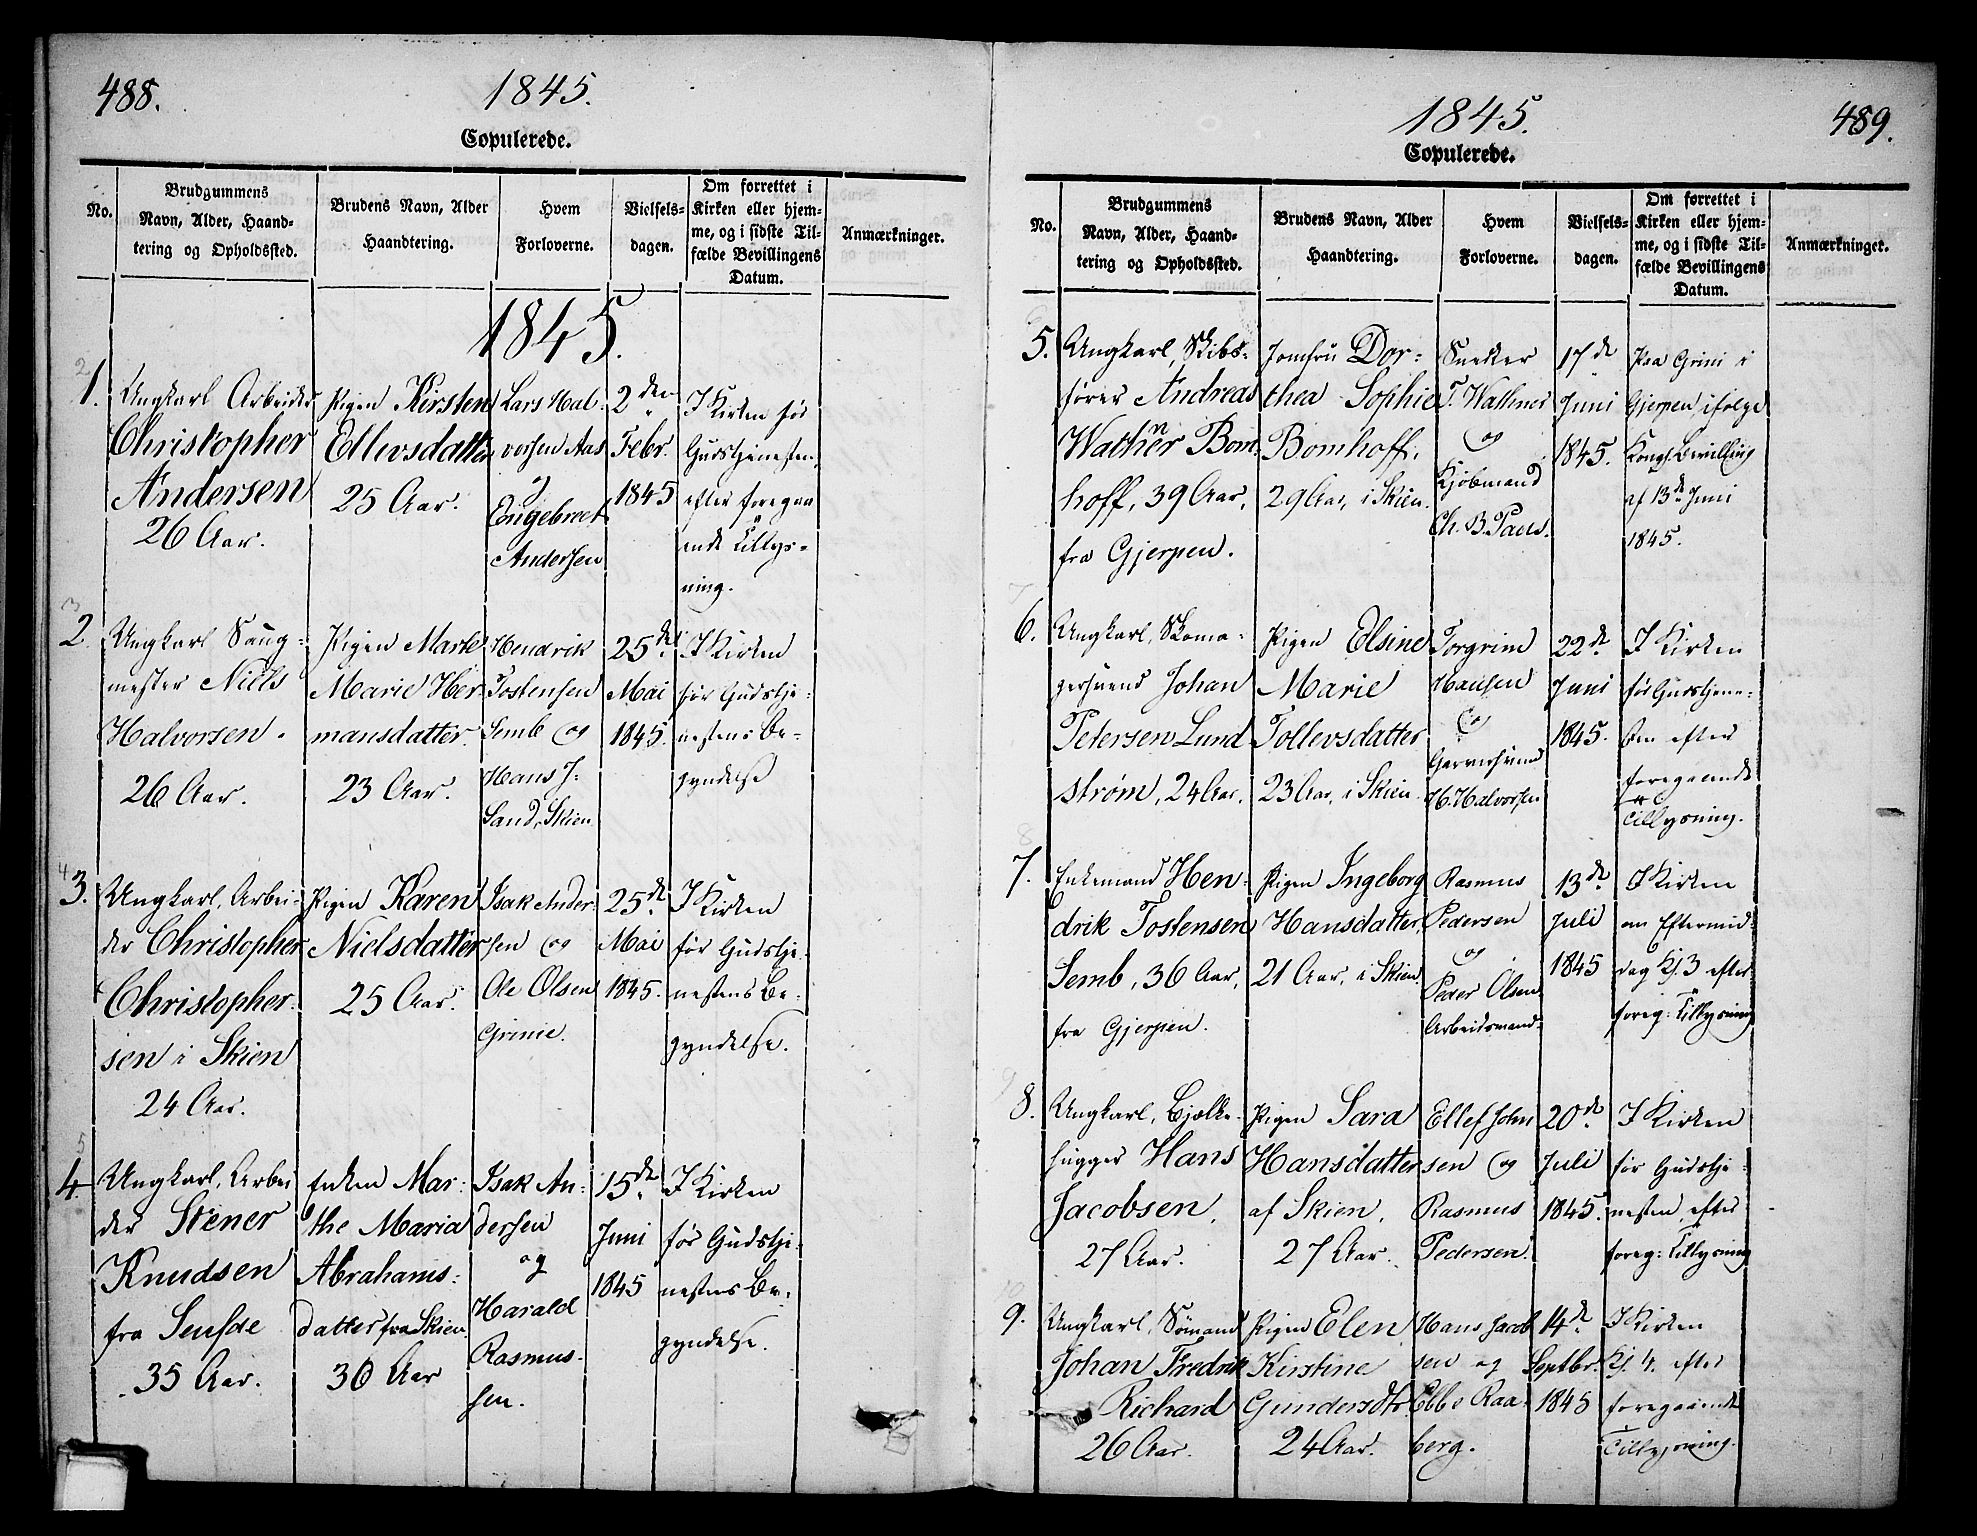 488.
1845.
Copulerede.
No.
Brudgummens
Navn, Alder, Haand-
tering og Opholdssted.
Brudens Navn, Alder
Haandtering.
Hvem
Forloverne.
Vielsels-
dagen.
Om forrettet i
Kirken eller hjem-
me, og i sidste Til-
fælde Bevillingens
Datum.
Anmærkninger.
1845.
2
1.
Ungkarl Arbeider
Christopher
Andersen
26 Aar.
Pigen Kirsten
Ellevsdatter
25 Aar.
Lars Hal-
vorsen Aas
og
Engebrect
Andersen
2den
Febr.
1845
I Kirken før
Gudstjenesten,
efter foregaa
ende Tillys-
ning.
3
2.
Ungkarl Saug-
mester Niels
Halvorsen.
26 Aar.
Pigen Marte
Marie Her
mansdatter.
23 Aar.
Hendrik
Tostensen
Semb og
Hans J:
Sand, Skien
25de
Mai
1845.
I Kirken
før Gudstje-
nestens Be-
gyndelse
4
3.
Ungkarl, Arbei-
der Christopher
Christopher-
sen i Skien
24 Aar.
Pigen Karen
Nielsdatter
25 Aar.
Isak Ander-
sen og
Ole Olsen
Grinie.
25de
Mai
1845.
I Kirken
før Gudstje-
nestens Be-
gyndelse.
5
4.
Ungkarl, Arbei
der Stener
Knudsen
fra
35 Aar.
Enken Mar-
the Maria
Abrahams-
datter fra Skien
36 Aar
Isak An-
dersen
og
Harald
Rasmus-
sen.
15de
Juni
1845
I Kirken
før Gudstje-
nestens Be-
gyndelse.
1845.
489.
Copulerede.
No.
Brudgummens
Navn, Alder, Haand-
tering og Opholdssted.
Brudens Navn, Alder
Haandtering.
Hvem
Forloverne.
Vielsels-
dagen.
Om forrettet i
Kirken eller hjem-
me, og i sidste Til-
fælde Bevillingens
Datum.
Anmærkninger.
5.
Ungkarl, Skibs-
fører Andreas
Wathne Bom-
hoff, 39 Aar,
fra Gjerpen.
Jomfru Dor-
thea Sophie
Bomhoff,
29 Aar, i Skien.
Snekker
T. Wathne
og
Kjøbmand
Ch. B. Paus.
17de
Juni
1845.
Paa Grini i
Gjerpen ifølge
Kongl. Bevilling
af 13de Juni
1845.
7
6.
Ungkarl, Skoma-
gersvend Johan
Petersen Lund
strøm, 24 Aar.
Pigen Elsine
Marie
Tollevsdatter
23 Aar, i Skien.
Torgrim
Hansen
og
Garversvend
H. Halvorsen
22de
Juni
1845.
I Kirken
før Gudstjene-
sten efter
foregaaende
Tillysning.
8
7.
Enkemand Hen-
drik Tostensen
Semb, 36 Aar,
fra Gjerpen.
Pigen Ingeborg
Hansdatter,
21 Aar, i Skien.
Rasmus
Pedersen
og
Peder Olsen
Arbeidsmænd.
13de
Juli
1845
I Kirken
om Eftermid-
dag Kl. 3 efter
foreg: Tillysning
9
8.
Ungkarl, Bjælke-
hugger Hans
Jacobsen,
27 Aar.
Pigen Sara
Hansdatter
af Skien,
27 Aar.
Ellef John
sen og
Rasmus
Pedersen.
20de
Juli
1845.
I Kirken
før Gudstje-
nesten, efter
foreg: Tillysning
10
9.
Ungkarl, Sømand
Johan Fredrik
Richard
26 Aar.
Pigen Elen
Kirstine
Gundersdtr.
24 Aar.
Hans Jacob
sen og
Ebbe Raa-
berg.
14de
Septbr.
1845
I Kirken
Kl. 4, efter
foregaaende
Tillysning.